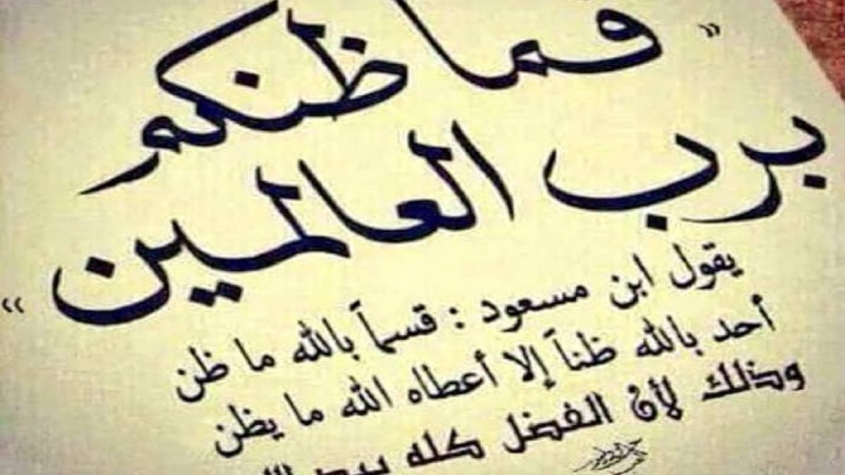 « فما ظنكم
برب العالمين »
يقول ابن مسعود : قسماً بالله ما ظن
أحد بالله ظناً إلا أعطاه الله ما يظن
وذلك لأن الفضل كله بيد